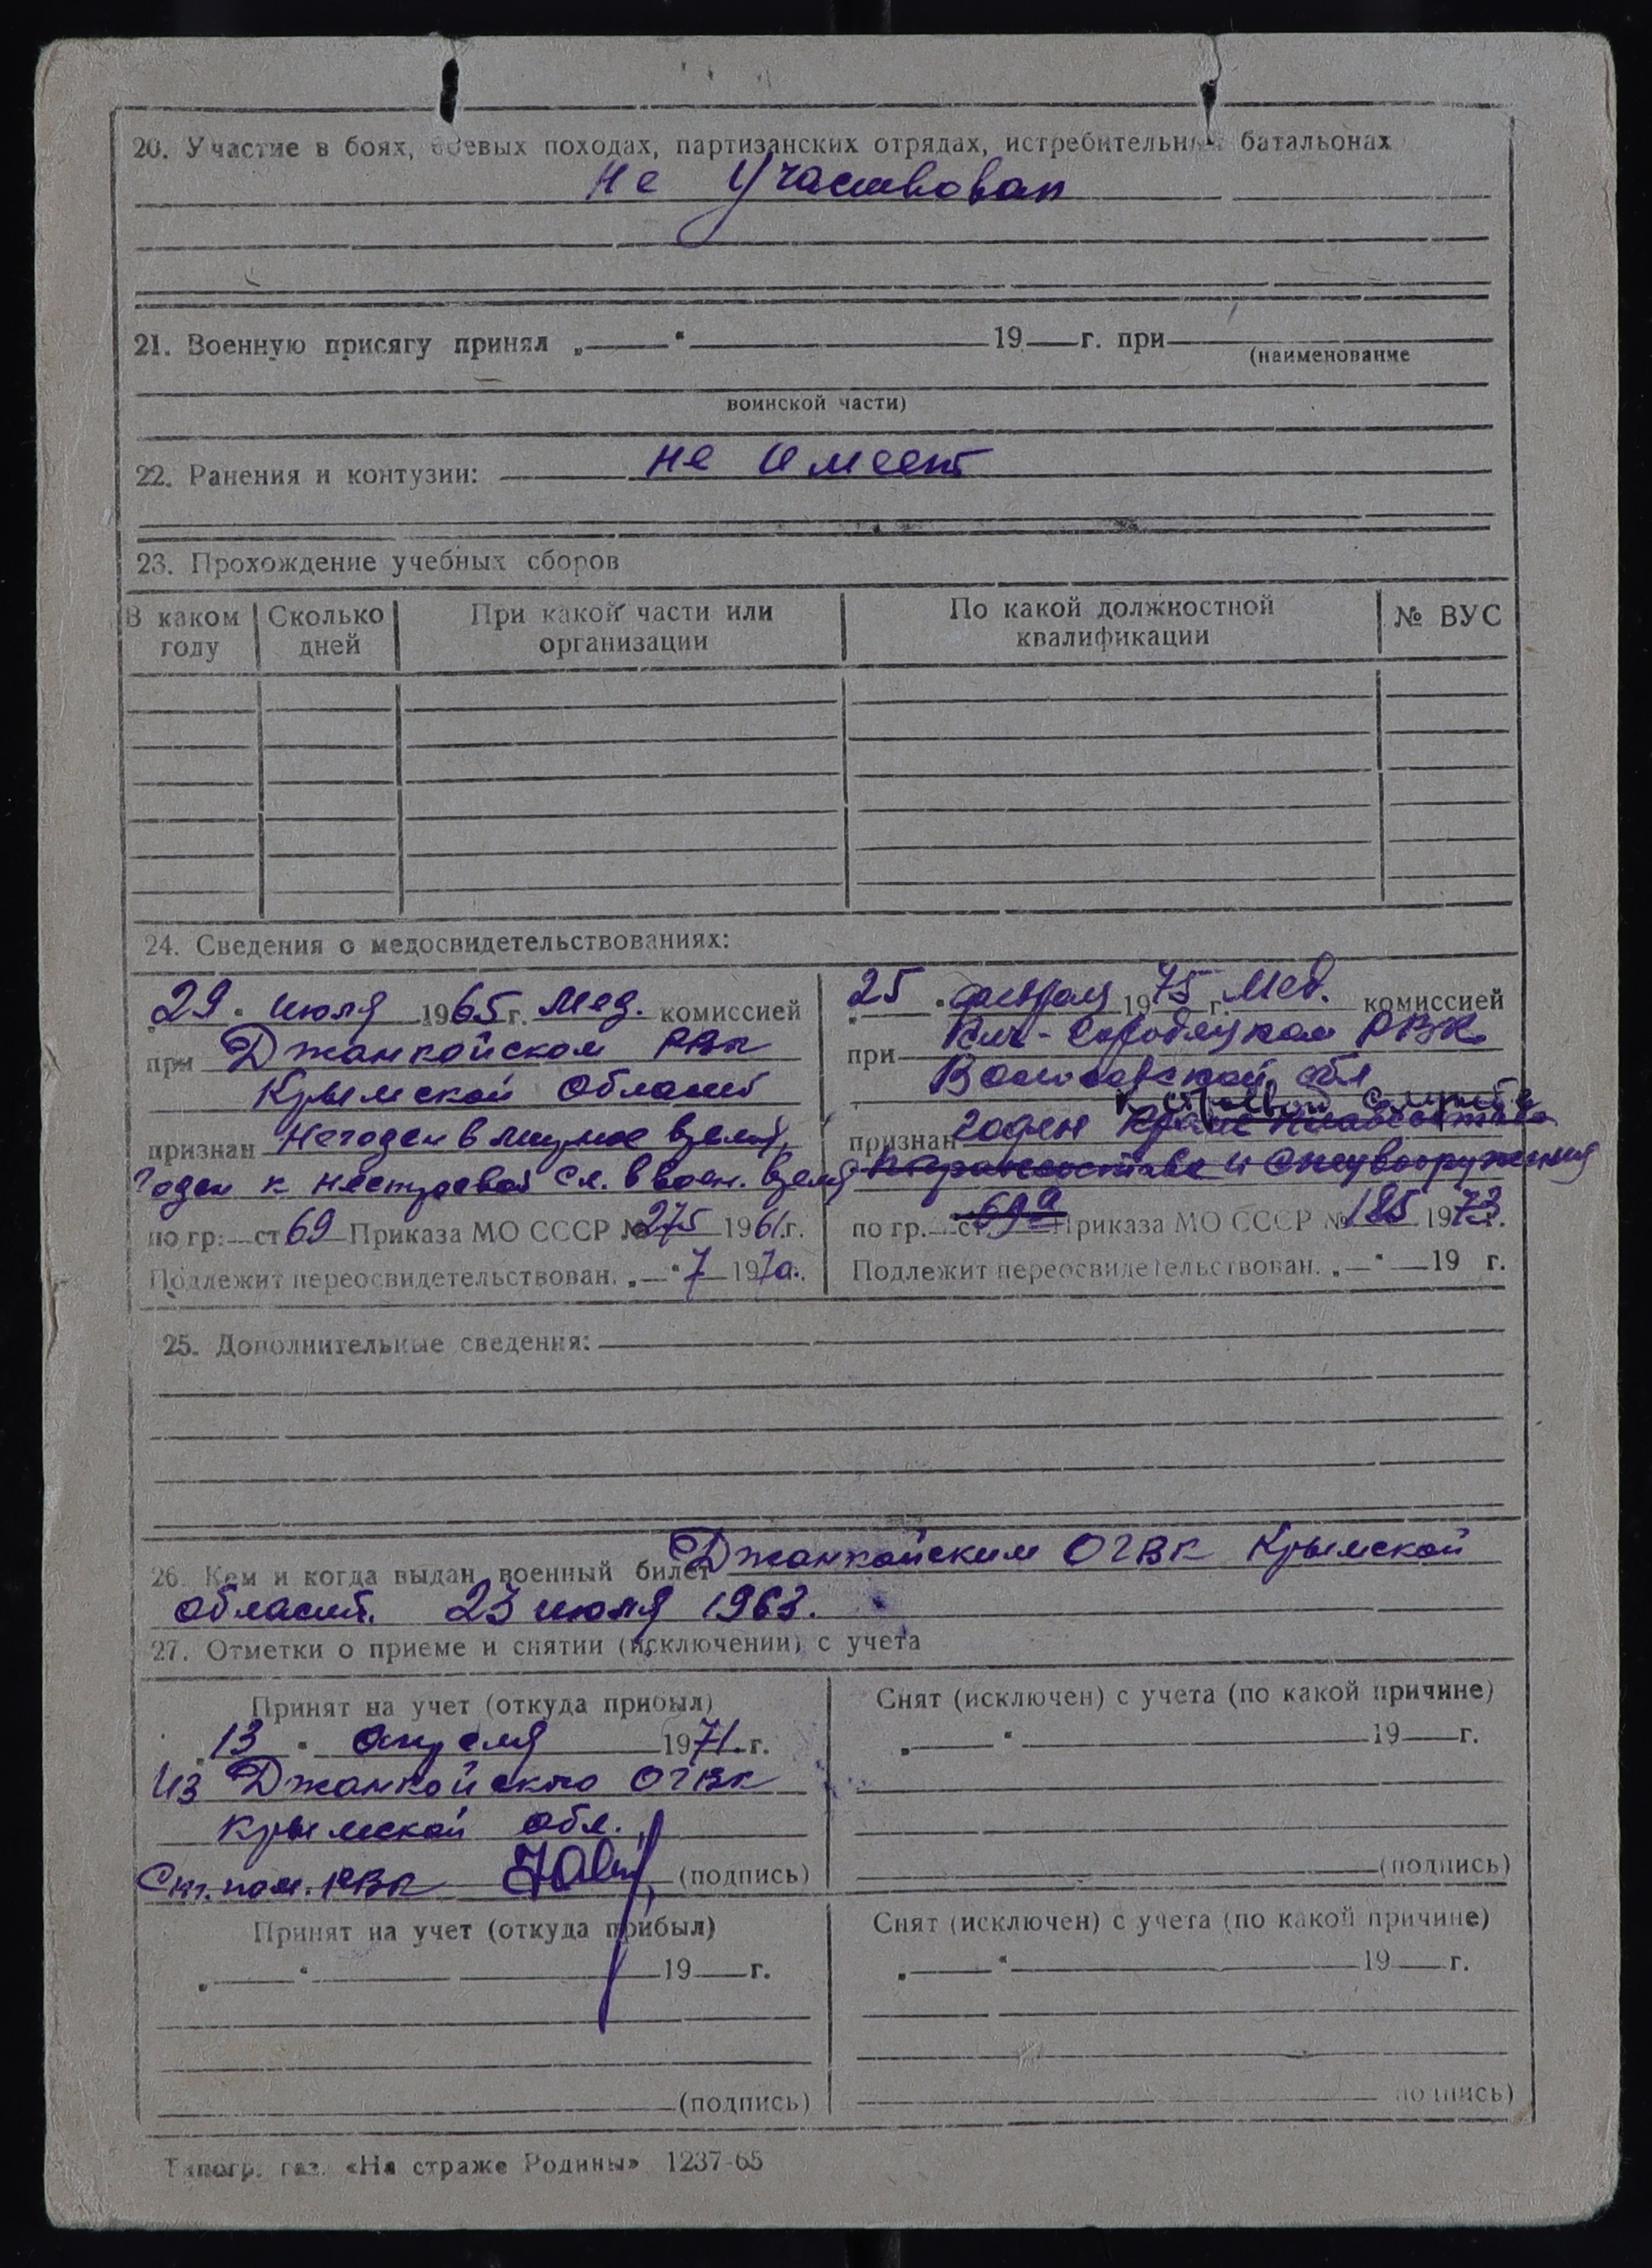 20. Участие в боях, боевых походах, партизанских отрядах, истребительных батальонах
не участвовал
21. Военную присягу принял „ “ 19 г. при
(наименование
воинской части)
22. Ранения и контузии: не имеет
23. Прохождение учебных сборов
В каком году
Сколько дней
При какой части или организации
По какой должностной квалификации
№ ВУС
24. Сведения о медосвидетельствованиях:
„29“ июля 1965 г. мед. комиссией
при Джанкойском РВК
Крымской области
признан Негоден в мирное время,
годен к нестроевой сл. в воен. время
по гр. ст 69 Приказа МО СССР № 275 1961 г.
Подлежит переосвидетельствован. „ “ 7 1970.
„25“ февраля 1975 г. Мед. комиссией
при Кич-Городецком РВК
Вологодской обл
к строевой службе
признан годен кроме плавсостава
и спецвооружения
по гр. ст 69а Приказа МО СССР № 185 1973 г.
Подлежит переосвидетельствован. „ “ 19 г.
25. Дополнительные сведения:
26. Кем и когда выдан военный билет Джанкойским ОГВК Крымской
област. 23 июля 1963.
27. Отметки о приеме и снятии (исключении) с учета
Принят на учет (откуда прибыл)
„13“ апреля 1971 г.
из Джанкойского ОГВК
Крымской обл.
Ст. пом. РВК (подпись)
Снят (исключен) с учета (по какой причине)
„ “ 19 г.
(подпись)
Принят на учет (откуда прибыл)
„ “ 19 г.
(подпись)
Снят (исключен) с учета (по какой причине)
„ “ 19 г.
подпись)
Типогр. газ. «На страже Родины» 1237-65